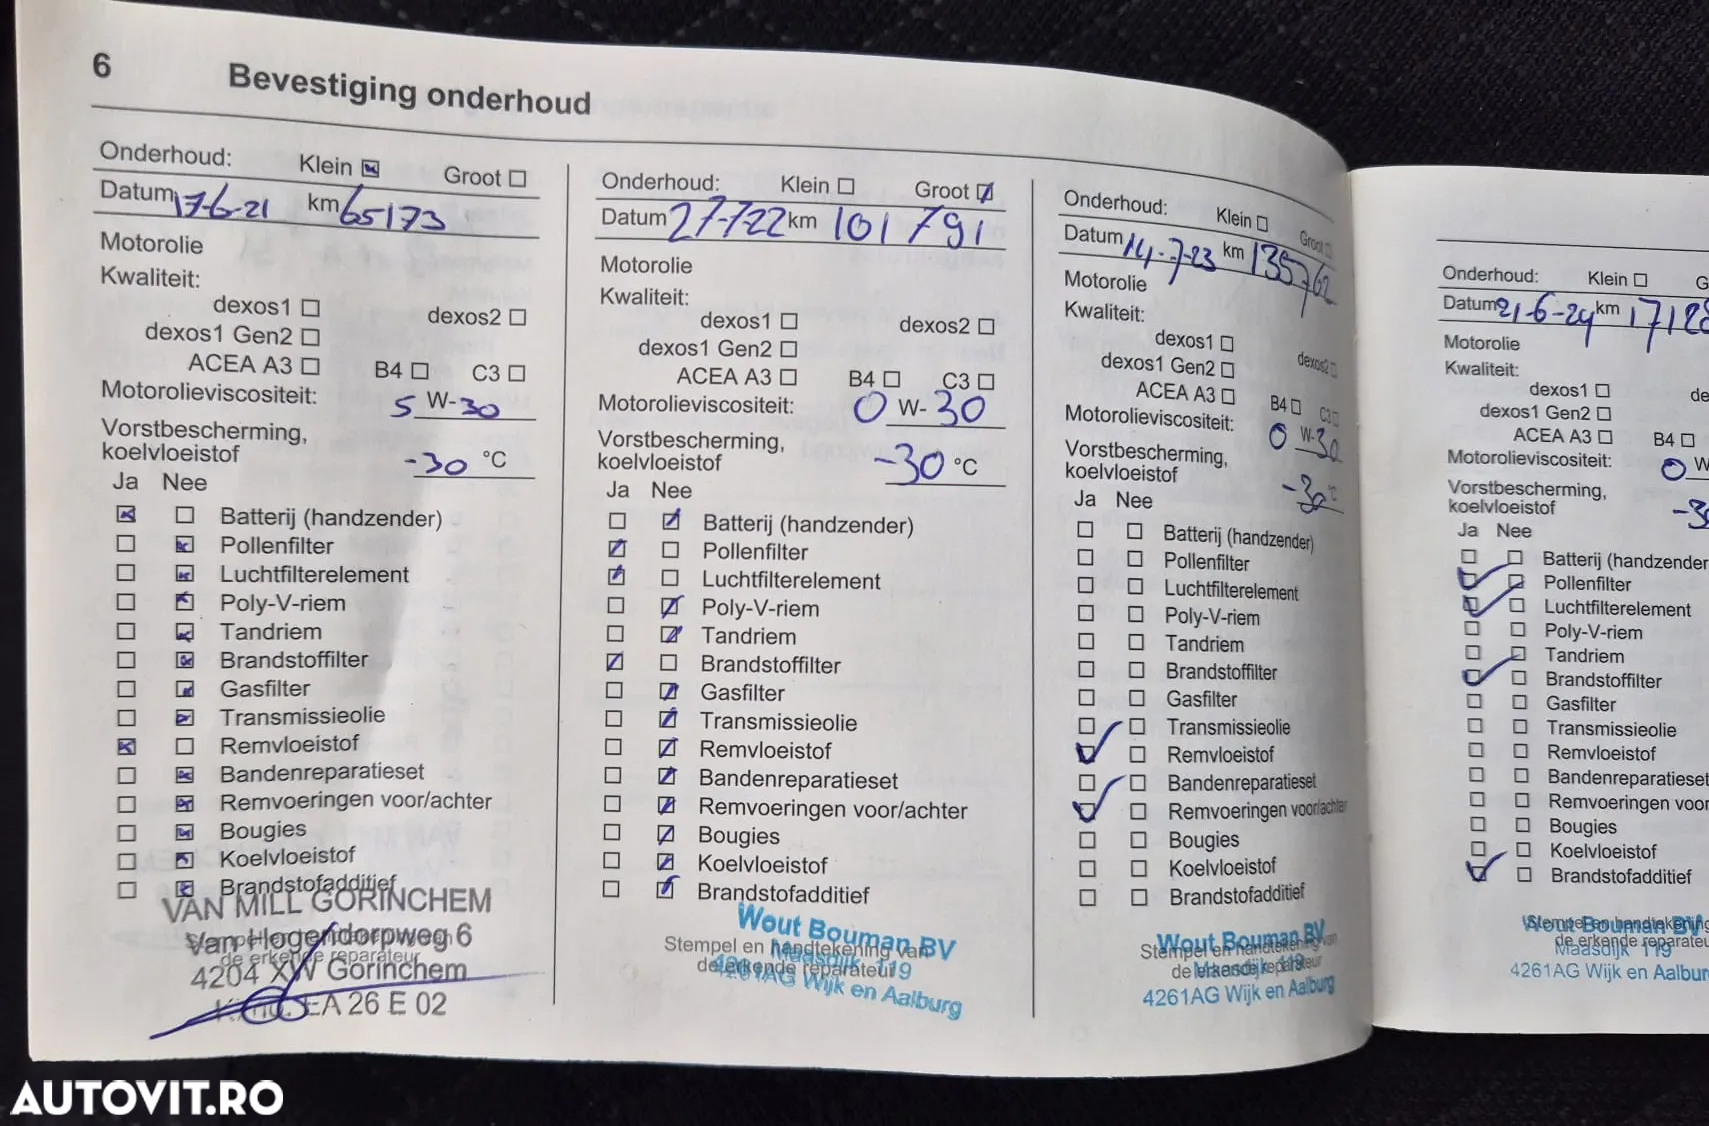 6 Bevestiging onderhoud
Onderhoud: Klein Groot
Datum 17-6-21 km 65173
Motorolie
Kwaliteit:
dexos1 dexos2
dexos1 Gen2
ACEA A3 B4 C3
Motorolieviscositeit: 5 W-30
Vorstbescherming,
koelvloeistof -30 °C
Ja Nee
Batterij (handzender)
Pollenfilter
Luchtfilterelement
Poly-V-riem
Tandriem
Brandstoffilter
Gasfilter
Transmissieolie
Remvloeistof
Bandenreparatieset
Remvoeringen voor/achter
Bougies
Koelvloeistof
Brandstofadditief
VAN MILL GORINCHEM
Van Hogendorpweg 6
de erkende reparateur
4204 XW Gorinchem
EA 26 E 02
Onderhoud: Klein Groot
Datum 27-7-22 km 101791
Motorolie
Kwaliteit:
dexos1 dexos2
dexos1 Gen2
ACEA A3 B4 C3
Motorolieviscositeit: 0 W-30
Vorstbescherming,
koelvloeistof -30 °C
Ja Nee
Batterij (handzender)
Pollenfilter
Luchtfilterelement
Poly-V-riem
Tandriem
Brandstoffilter
Gasfilter
Transmissieolie
Remvloeistof
Bandenreparatieset
Remvoeringen voor/achter
Bougies
Koelvloeistof
Brandstofadditief
Wout Bouman BV
Stempel en handtekening van
Maasdijk 119
de erkende reparateur
4261AG Wijk en Aalburg
Onderhoud: Klein Groot
Datum 14-7-23 km 135762
Motorolie
Kwaliteit:
dexos1 dexos2
dexos1 Gen2
ACEA A3 B4 C3
Motorolieviscositeit: 0 W-30
Vorstbescherming,
koelvloeistof -30 °C
Ja Nee
Batterij (handzender)
Pollenfilter
Luchtfilterelement
Poly-V-riem
Tandriem
Brandstoffilter
Gasfilter
Transmissieolie
Remvloeistof
Bandenreparatieset
Remvoeringen voor/achter
Bougies
Koelvloeistof
Brandstofadditief
Wout Bouman BV
Stempel en handtekening van
Maasdijk 119
de erkende reparateur
4261AG Wijk en Aalburg
Onderhoud: Klein G
Datum 21-6-24 km 17128
Motorolie
Kwaliteit:
dexos1 de
dexos1 Gen2
ACEA A3 B4
Motorolieviscositeit: 0 W
Vorstbescherming,
koelvloeistof -30
Ja Nee
Batterij (handzender
Pollenfilter
Luchtfilterelement
Poly-V-riem
Tandriem
Brandstoffilter
Gasfilter
Transmissieolie
Remvloeistof
Bandenreparatieset
Remvoeringen voor
Bougies
Koelvloeistof
Brandstofadditief
Wout Bouman BV
Stempel en handtekening
de erkende reparateu
Maasdijk 119
4261AG Wijk en Aalbur
AUTOVIT.RO